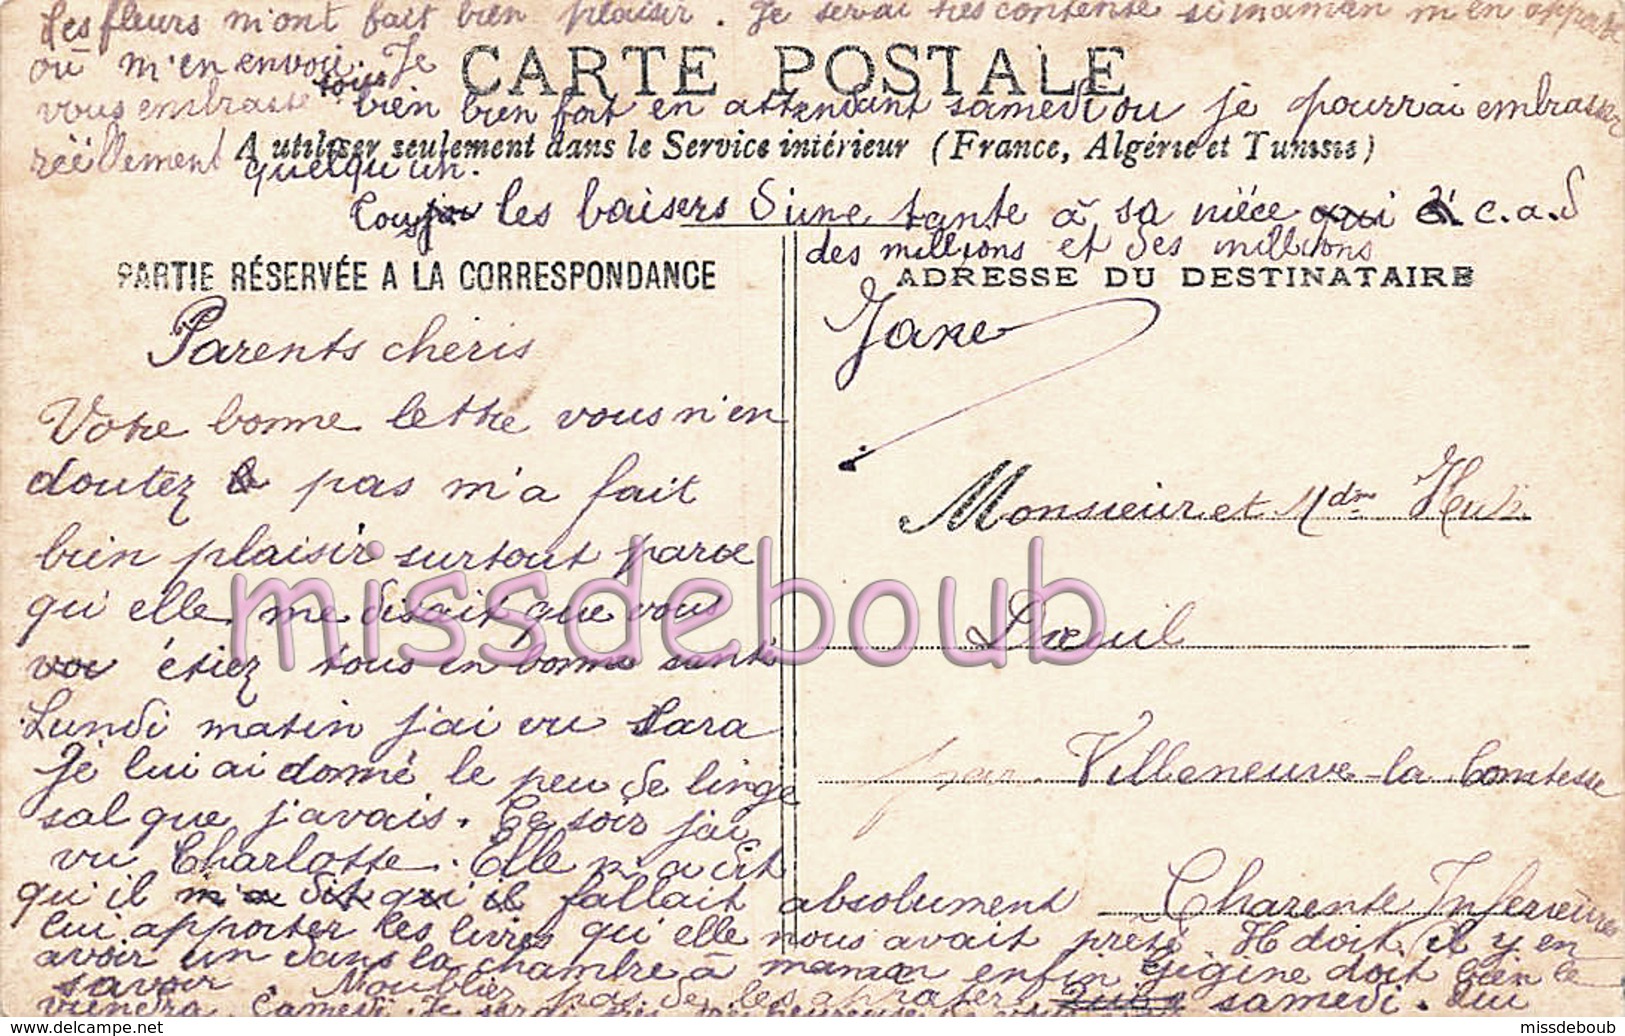 Les fleurs m'ont fait bien plaisir. Je serai très contente si maman m'en apporte
où m'en envoie. Je
CARTE POSTALE
vous embrasse tous bien bien fort en attendant samedi ou je pourrai embrasser
réellement
A utiliser seulement dans le Service intérieur (France, Algérie et Tunisie)
quelqu'un.
les baisers d'une tante à sa nièce qui c.a.d
des millions et des millions
PARTIE RÉSERVÉE A LA CORRESPONDANCE
ADRESSE DU DESTINATAIRE
Jane
Parents chéris
Votre bonne lettre vous n'en
doutez pas m'a fait
bien plaisir surtout parce
qu'elle me disait que vous
étiez tous en bonne santé
Lundi matin j'ai vu Sara
Je lui ai donné le peu de linge
sal que j'avais. Ce soir j'ai
vu Charlotte. Elle m'a dit
qu'il m'a dit qu'il fallait absolument
lui apporter les livres qu'elle nous avait prêté. Il doit il y en
avoir un dans la chambre à maman enfin Gigine doit bien le
savoir N'oublier pas de les apporter samedi. Lui
viendra Samedi. Je serai très
Monsieur et Mdme
Loeuil
par Villeneuve-la Comtesse
Charente Inférieure
missdeboub
www.delcampe.net
missdeboub